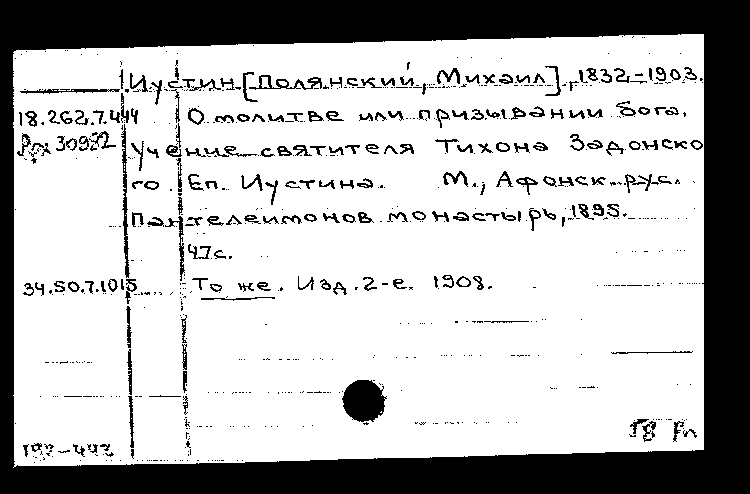 Иустин [Полянский, Михаил], 1832-1903.
18.262.7.444 О молитве или призывании бога.
Учение святителя Тихона Задонско
го. Еп. Иустина. М., Афонск. рус.
Пантелеимонов монастырь, 1895.
47с.
34.50.7.1015 То же. Изд. 2-е. 1908.